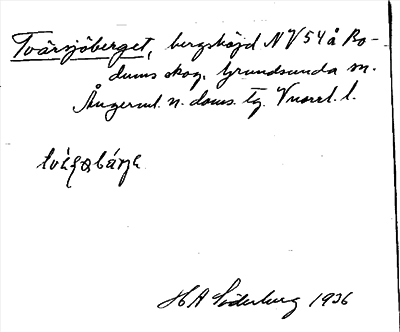 Tvärsjöberget, bergshöjd NV54 å Bo-
dums skog, Grundsunda sn.
Ångerml. n. doms. tg. Vnorrl. l.
H A Söderberg 1936